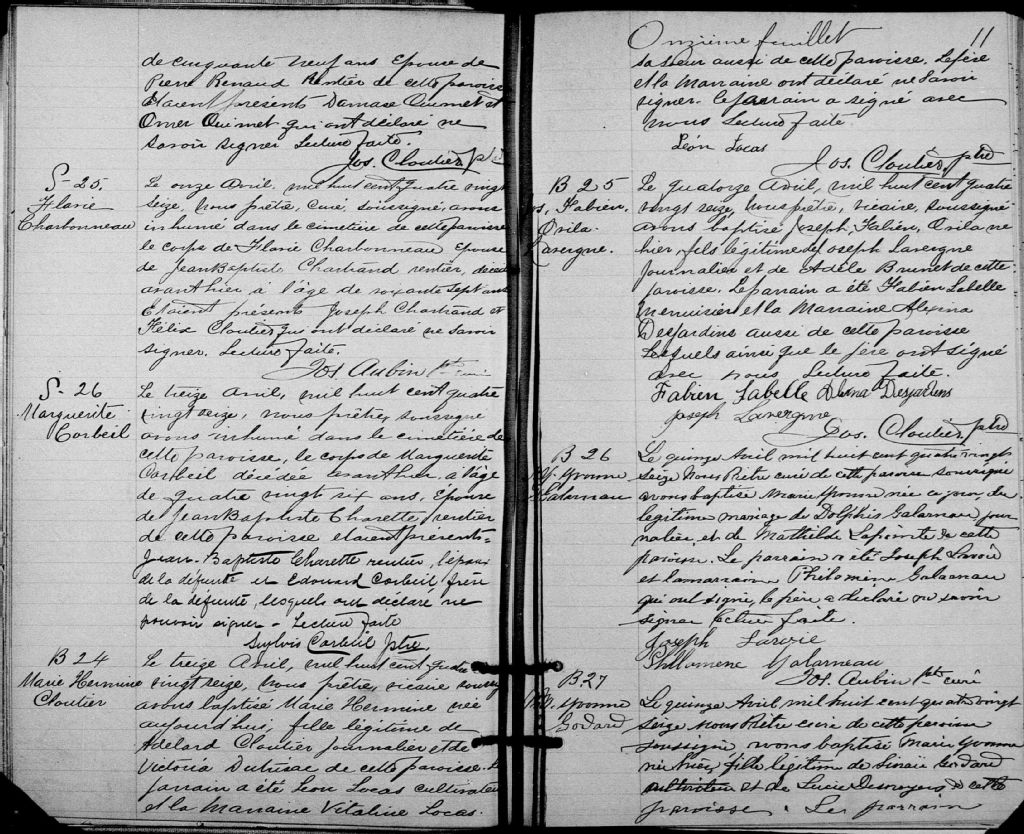 de cinquante neuf ans Epouse de
Pierre Renaud Rentier de cette paroisse
Etaient présents Damase Ouimet et
Omer Ouimet qui ont déclaré ne
Savoir Signer Lecture faite.
Jos. Cloutier, ptre
S-25.
Flavie
Charbonneau
Le onze Avril, mil huit cent quatre vingt
Seize, Nous prêtre, Curé, soussigné, avons
inhumé dans le cimetière de cette paroisse
le corps de Flavie Charbonneau Epouse
de Jean Baptiste Chartrand rentier, décédée
avant hier, à l'âge de soixante Sept ans
Etaient présents Joseph Chartrand et
Félix Cloutier qui ont déclaré ne Savoir
Signer. Lecture faite.
Jos Aubin ptre curé
S-26
Marguerite
Corbeil
Le treize Avril, mil huit cent quatre
vingt seize, nous prêtre, soussigné
avons inhumé dans le cimetière de
cette paroisse, le corps de Marguerite
Corbeil décédée avant hier, à l'âge
de quatre vingt six ans, Epouse
de Jean Baptiste Charette rentier
de cette paroisse etaient présents
Jean-Baptiste Charette rentier, l'époux
de la défunte et Edouard Corbeil frère
de la défunte, lesquels ont déclaré ne
pouvoir signer - Lecture faite
Corbeil Ptre,
B 24
Marie Hermine
Cloutier
Le treize Avril, mil huit cent quatre
vingt seize, nous prêtre, vicaire soussigné
avons baptisé Marie Hermine née
aujourdhui, fille légitime de
Adélard Cloutier Journalier et de
Victoria Dutrisac de cette paroisse. Le
parrain a été Léon Locas cultivateur
et la Marraine Vitaline Locas.
Onzième feuillet 11
sa Soeur aussi de cette paroisse. Le père
et la Marraine ont déclaré ne Savoir
signer. Le parrain a signé avec
nous Lecture faite.
Léon Locas
Jos. Cloutier, ptre
B 25
Jos. Fabien.
Orila
Lavergne.
Le quatorze Avril, mil huit cent quatre
vingt seize, nous prêtre, vicaire, soussigné
avons baptisé Joseph, Fabien, Orila né
hier, fils légitime de Joseph Lavergne
Journalier et de Adèle Brunet de cette
paroisse. Le parrain a été Fabien Labelle
Menuisier et la Marraine Alexina
Desjardins aussi de cette paroisse
Lesquels ainsi que le père ont signé
avec nous Lecture faite.
Fabien Labelle Desjardins
Joseph Lavergne
Jos. Cloutier, ptre
B 26
Yvonne
Galarneau
Le quinze Avril mil huit cent quatre vingt
seize Nous Prêtre curé de cette paroisse soussigné
avons baptisé Marie Yvonne née ce jour, du
légitime mariage de Dolphis Galarneau jour
nalier, et de Mathilde Lapointe de cette
paroisse. Le parrain a été Joseph Lavoie
et la marraine Philomène Galarneau
qui ont signé, le père a déclaré ne savoir
signer lecture faite.
Joseph Lavoie
Philomene Galarneau
Jos. Aubin ptre curé
B 27
Yvonne
Godard
Le quinze Avril mil huit cent quatre vingt
seize nous Prêtre curé de cette paroisse
soussigné avons baptisé Marie Yvonne
née hier, fille légitime de Godard
et de Lucie Desroyers de cette
paroisse. Le parrain